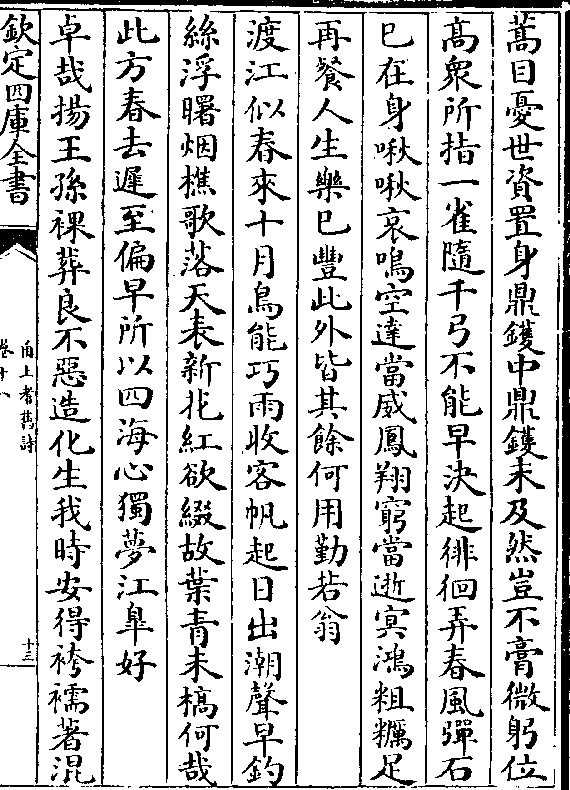 蒿目憂世資置身鼎鑊中鼎鑊未及然豈不膏微躬位
髙衆所指一雀隨千弓不能早決起徘徊弄春風彈石
已在身啾啾哀鳴空達當威鳳翔窮當逝㝠鴻粗糲足
再餐人生樂已豐此外皆其餘何用勤若翁
渡江似春來十月鳥能巧雨收客帆起日出潮聲早釣
絲浮曙烟樵歌落天表新花紅欲綴故葉青未槁何哉
此方春去遲至偏早所以四海心獨夢江臯好
卓哉揚王孫裸葬良不惡造化生我時安得袴襦著混
欽定四庫全書
甬上耆舊詩
卷十八
十三